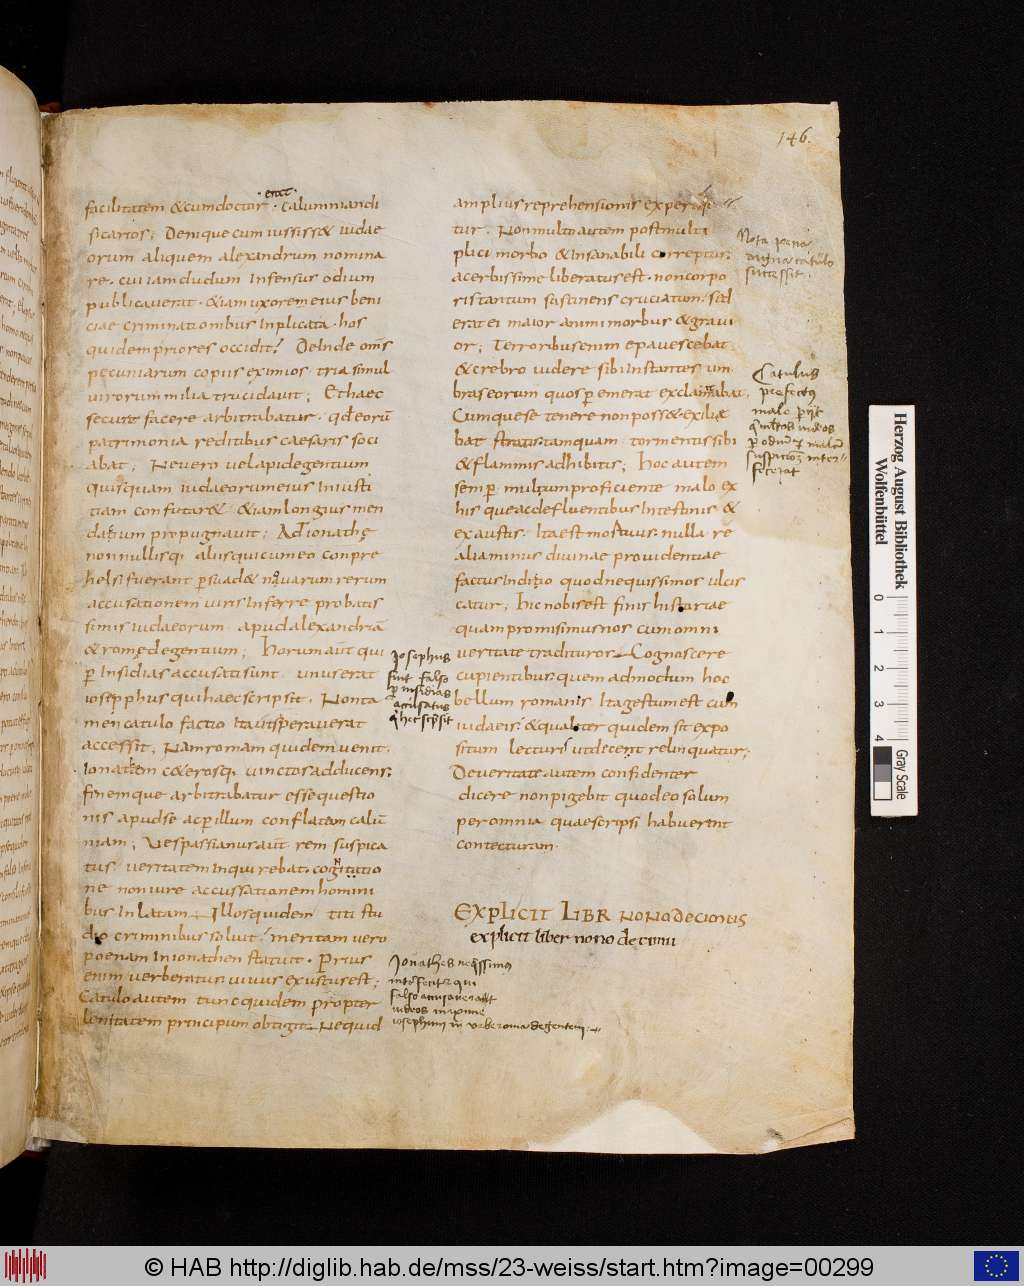 146.
·erat·
facilitatem & cum doctor · Calumniandi
sicarios; Denique cum iussiss& iudae
orum aliquem alexandrum nomina
re. cui iamdudum Infensus odium
publicauerat · & iam uxorem eius beni
ciae criminationibus Inplicata · hos
quidem priores occidit; Deinde om̅s
pecuniarum copiis eximios · tria simul
uirorum milia trucidauit; Et haec
secure facere arbitrabatur · qd eorū
patrimonia reditibus caesaris soci
abat; Ne uero uel api degentium
quisquam iudaeorum eius Iniusti
tiam confutar& · & iam longius men
dacium propugnauit; Ad Ionathę
non nullisq; aliis qui cum eo conpre
hensi fuerant persuad& nouarum rerum
accusationem uiris Inferre probatis
simis iudaeorum · apud alexandriā
& romę degentium; Horum aūt qui
p Insidias accusati sunt · unus erat
iosepphus qui haec scripsit. Non ta
men catulo factio Ita ut sperauerat
accessit. Nam romam quidem uenit.
Ionathem c&erosq; uinctos adducens;
finemque arbitrabatur esse questio
nis apud se ac p illum conflatam calū
niam; Vespassianus aūt rem suspica
tus ueritatem Inquirebat. cognitio
ne non iure accussationem homini
bus Inlatam. Illos quidem titi stu
dio criminibus soluit; meritam uero
poenam In ionathen statuit · Prius
enim uerberatus uiuus exustus est;
Catulo autem tunc quidem propter
lenitatem principum obtigit. Ne quid
Iosephus
fuit falso
p insidias
accusatus
q hec scpsit
Ionathes neqissimus
qui
falso accusauerat
iudeos maxime
iosephum in urbe roma degentem
amplius reprehensionis experire
tur. Non multo autem post multi
plici morbo & Insanabili correptus
acerbissime liberatus est · non corpo
ris tantum sustinens cruciatum · sed
erat ei maior animi morbus & grauí
or; Terroribus enim epauescebat.
& crebro uidere sibi Instantes um
bras eorum quos pemerat exclamabat.
Cumque se tenere non poss& exilie
bat stratis tamquam tormentis sibi
& flammis adhibitis; Hoc autem
semp multum proficiente malo ex
his que ac defluentibus Intestinis &
exaustis. Ita est mortuus · nulla re
alia minus diuinae prouidentiae
factus Inditio quod nequissimos ulcis
catur; Hic nobis est finis historiae
quam promisimus nos cum omni
ueritate tradituros. Cognoscere
cupientibus quem admodum hoc
bellum romanis Ita gestum est cum
iudaeis; & qualiter quidem sit expo
situm lecturis ut decent relinquatur;
De ueritate autem confidenter
dicere non pigebit quod eo solum
per omnia quae scripsi habuerint
contecturam·
EXPLICIT LIBR NONODECIMUS
explicit liber nono decimu
Nota pena
digna catulo
successit.
Catulus
perfectus
malo perijt
iudeos
suspicione inter
fecerat
Herzog August Bibliothek
Wolfenbüttel
0 1 2 3 4
Gray Scale
© HAB http://diglib.hab.de/mss/23-weiss/start.htm?image=00299